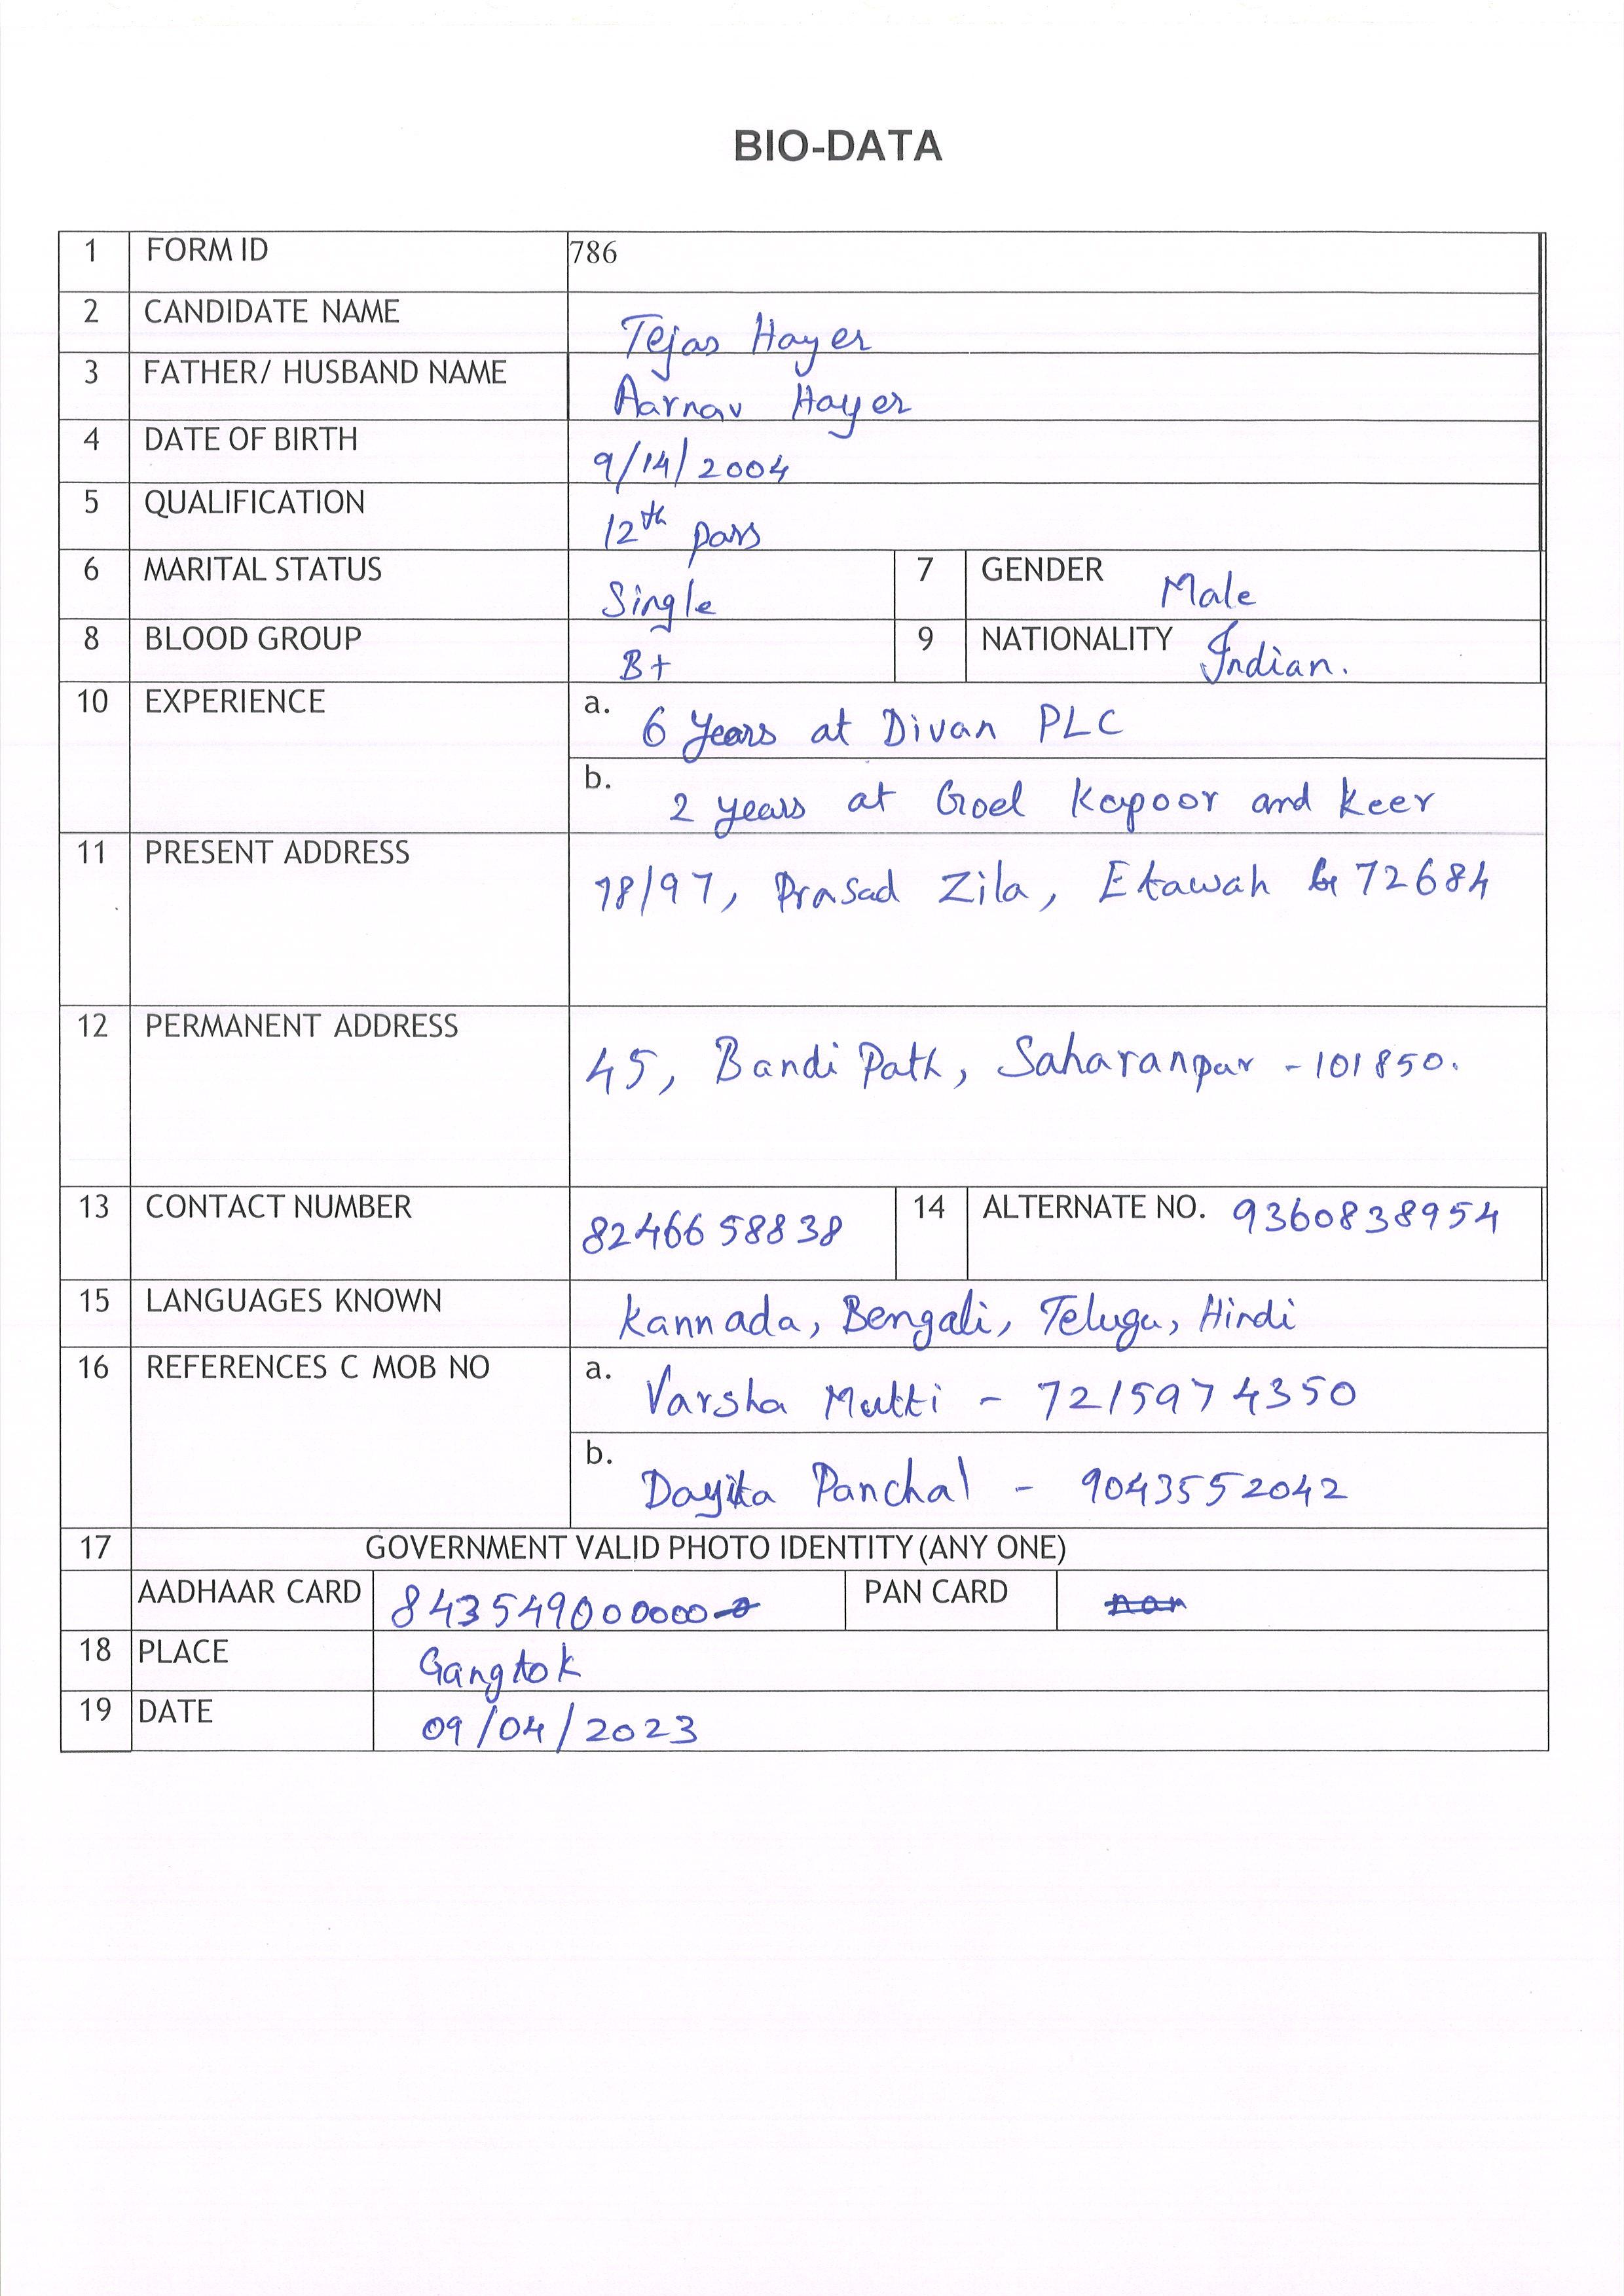 BIO-DATA
1 FORM ID 786
2 CANDIDATE NAME Tejas Hayer
3 FATHER/ HUSBAND NAME Aarnav Hayer
4 DATE OF BIRTH 9/14/2004
5 QUALIFICATION 12th pass
6 MARITAL STATUS Single 7 GENDER Male
8 BLOOD GROUP B+ 9 NATIONALITY Indian.
10 EXPERIENCE a. 6 Years at Divan PLC
b. 2 years at Goel Kapoor and Keer
11 PRESENT ADDRESS 18/97, Prasad Zila, Etawah 72684
12 PERMANENT ADDRESS 45, Bandi Path, Saharanpur - 101850.
13 CONTACT NUMBER 8246658838 14 ALTERNATE NO. 9360838954
15 LANGUAGES KNOWN Kannada, Bengali, Telugu, Hindi
16 REFERENCES C MOB NO a. Varsha Mutti - 7215974350
b. Dayita Panchal - 9043552042
17 GOVERNMENT VALID PHOTO IDENTITY (ANY ONE)
AADHAAR CARD 843549000000 PAN CARD
18 PLACE Gangtok
19 DATE 09/04/2023